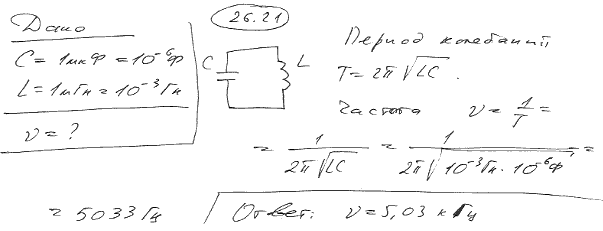 26.21
Дано
C = 1мкФ = 10⁻⁶Ф
L = 1мГн = 10⁻³Гн
ν = ?
C L
Период колебаний
T = 2π√LC .
Частота ν = 1/T =
= 1/(2π√LC) = 1/(2π√(10⁻³Гн · 10⁻⁶Ф)) =
= 5033 Гц
Ответ: ν = 5,03 кГц